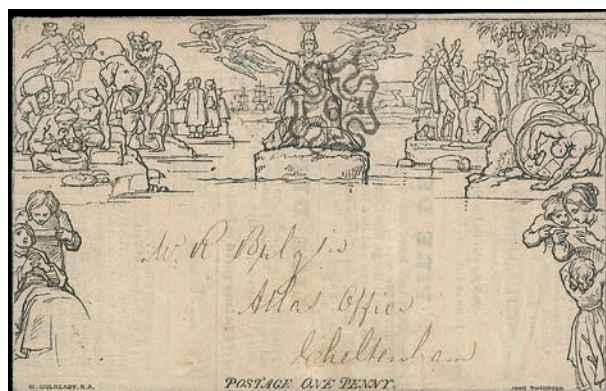 6
W. R. Bulgin
Atlas Office
Cheltenham
W. MULREADY. R.A.
POSTAGE ONE PENNY.
JOHN THOMPSON